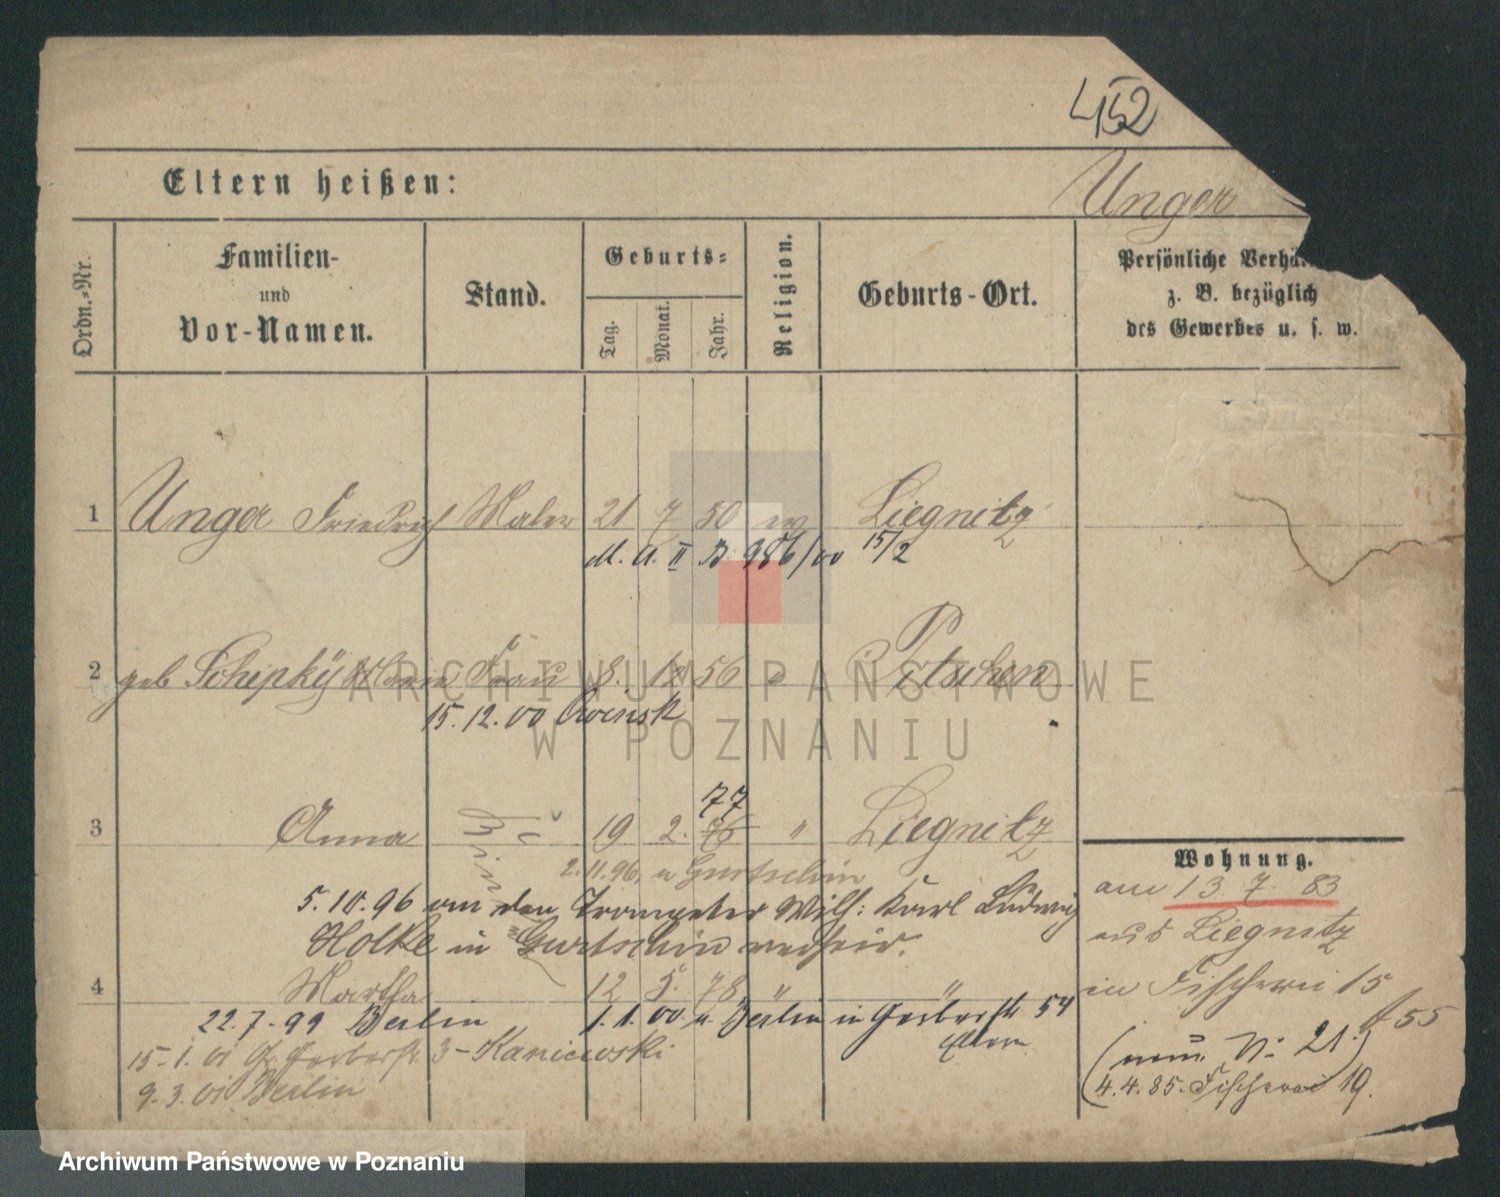 452
Eltern heißen:
Unger
Ordn.-Nr.
Familien-
und
Vor-Namen.
Stand.
Geburts-
Tag.
Monat.
Jahr.
Religion.
Geburts-Ort.
Persönliche Verhä
z. B. bezüglich
des Gewerbes u. s. w.
1 Unger Friedrich Maler 21 7 50 ev Liegnitz
M. A. II B 986/00 15/2
2 geb Schepky Frau 8. 56 " Pitschen
15.12.00 Owinsk
77
3 Anna 19 2. 76 " Liegnitz
2.11.96. n Gurtschin
5.10.96 an den Trompeter Wilh: Karl Ludwig
Holtke in Gurtschin verheir.
4 Martha 12 5. 78 " "
22.7.99 Berlin 1.1.00 v. Berlin in Gerberstr 54
Eltern
15.1.01 Gr. Gerberstr. 3 - Kaniewski
9.3.01 Berlin
Kinder
Wohnung.
am 13. 7. 83
aus Liegnitz
in Fischerei 15
55
(neue N: 21.)
4.4.85. Fischerei 19.
ARCHIWUM PAŃSTWOWE
W POZNANIU
Archiwum Państwowe w Poznaniu